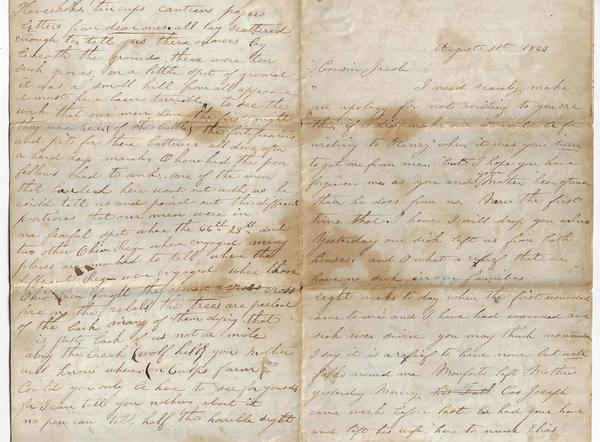 Haversacks, tin cups canteens papers
letters from dear ones all lay scattered
enough to tell us there owners lay
beneath the ground. there were ten
such graves, on a little spot of ground
it was a small hill from all appearance
it must have been terrable to see the
work that our men done the first night
they was here, of the battle, the
and pits for there batteries all done after
a hard days march. O how had the poor
fellows had to work. one of the men
that here went out with us he
could tell us and point out the different
positions that our men were in
on a fearful spot where the 66th 28th and
two other Ohio Reg where engaged many
places he to tell where the
different Reg were engaged where those
Ohio men fought they a cross
fire of the rebels the trees are peeled
of the bark many of them dying that
is just back of us not a mile
along the creek (wolf hill) you Mother
will know where in Culps farm
Could you only be here to see for yourselfs
for I can tell you nothing about it
no pen can tell, half the horrible sight
August 1st 1863
Cousin Jacob
I need scarcly make
an apology for not writing to you ere
this, if
writing to Henry when it was your turn
to get one from me. but I hope you have
forgiven me as you and your Mother hear oftener
than he does from us. Now the first
time that I have I will drop you a line
Yesterday our sick left us from both
houses. and O what a relief that we
have no sick in our families
eight weeks to day when the first wounded
came to me and I have had wounded and
sick ever since you may think no wonder
I say it is a relief to have none but well
folks around me. left Mothers
yesterday Morning Cos Joseph
came week before last he had gone home
and left his wife here to nurse Elias